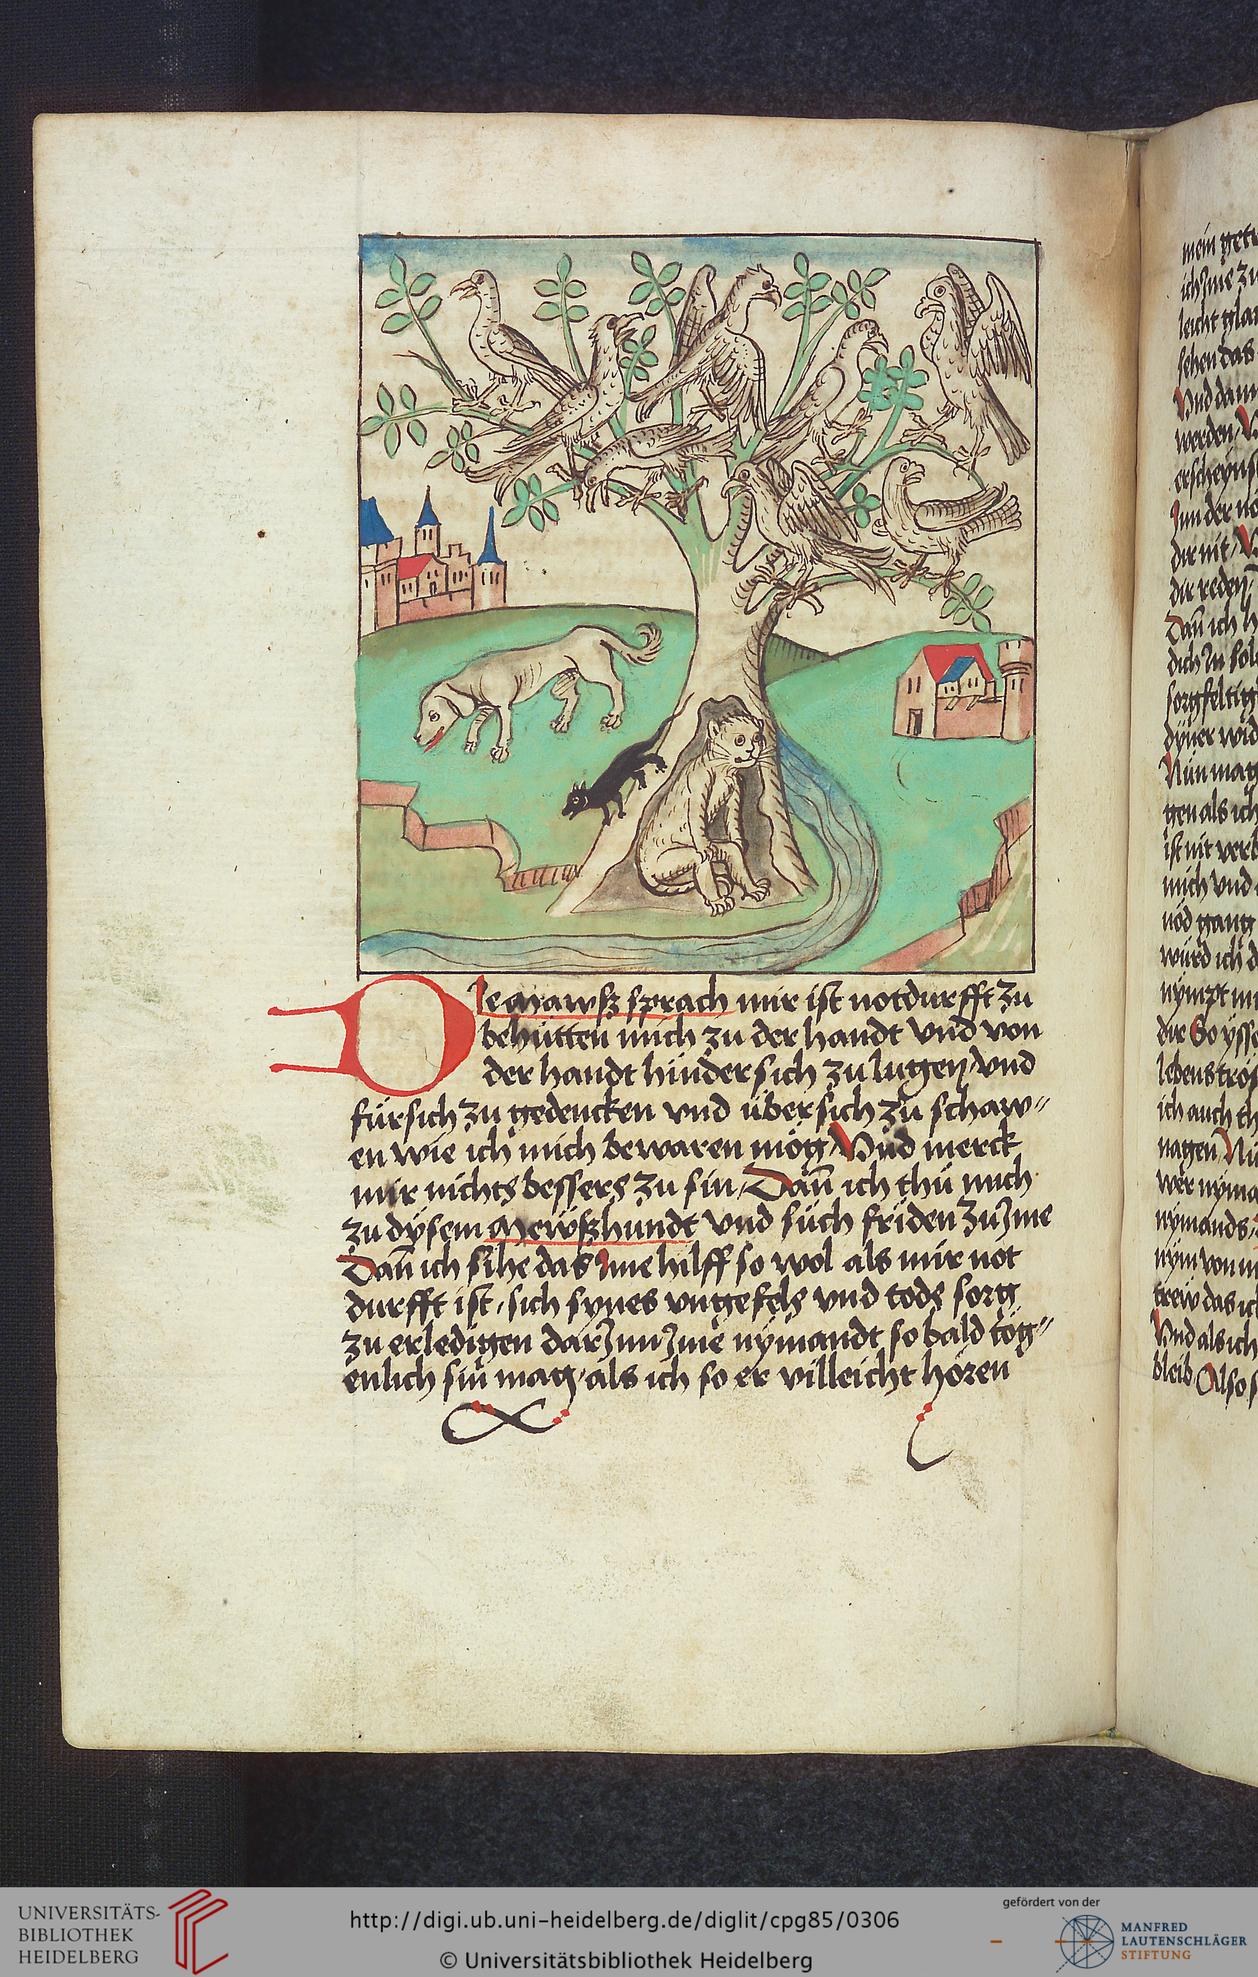 Die Mawß sprach mir ist notdurfft zu
behütten mich zu der handt vnd von
der handt hinder sich zu lugen / vnd
für sich zu gedencken vnd über sich zů schaw〃
en wie ich mich bewaren mög / Vnd merck
mir nichts bessers zu sin / Dañ ich thů mich
zu dysem Mewßhundt vnd sůch friden zu Jme
Dañ ich sihe das Jme hilff so wol als mir not
durfft ist / sich synes vngefels vnd tods sorg
zu erledigen dar Jnn Jme nÿmandt so bald tög〃
enlich sin mag / als ich so er villeicht hören
mein
ich Jme zu
leicht
sehen das
Vnd dann
werden /
Jnn der
dir nit /
dir reden
Dañ ich
dich Jn
dÿner wid
Nůn mag
gen als ich
ist nit
mich vnd
nod gang
würd ich
nÿmpt
dir So ÿsse
lebens
ich auch
nagen
wer nÿma
nÿmands
nÿm von
trew das ich
Vnd als ich
bleib / Also
UNIVERSITÄTS-
BIBLIOTHEK
HEIDELBERG
http://digi.ub.uni-heidelberg.de/diglit/cpg85/0306
© Universitätsbibliothek Heidelberg
gefördert von der
MANFRED
LAUTENSCHLÄGER
STIFTUNG